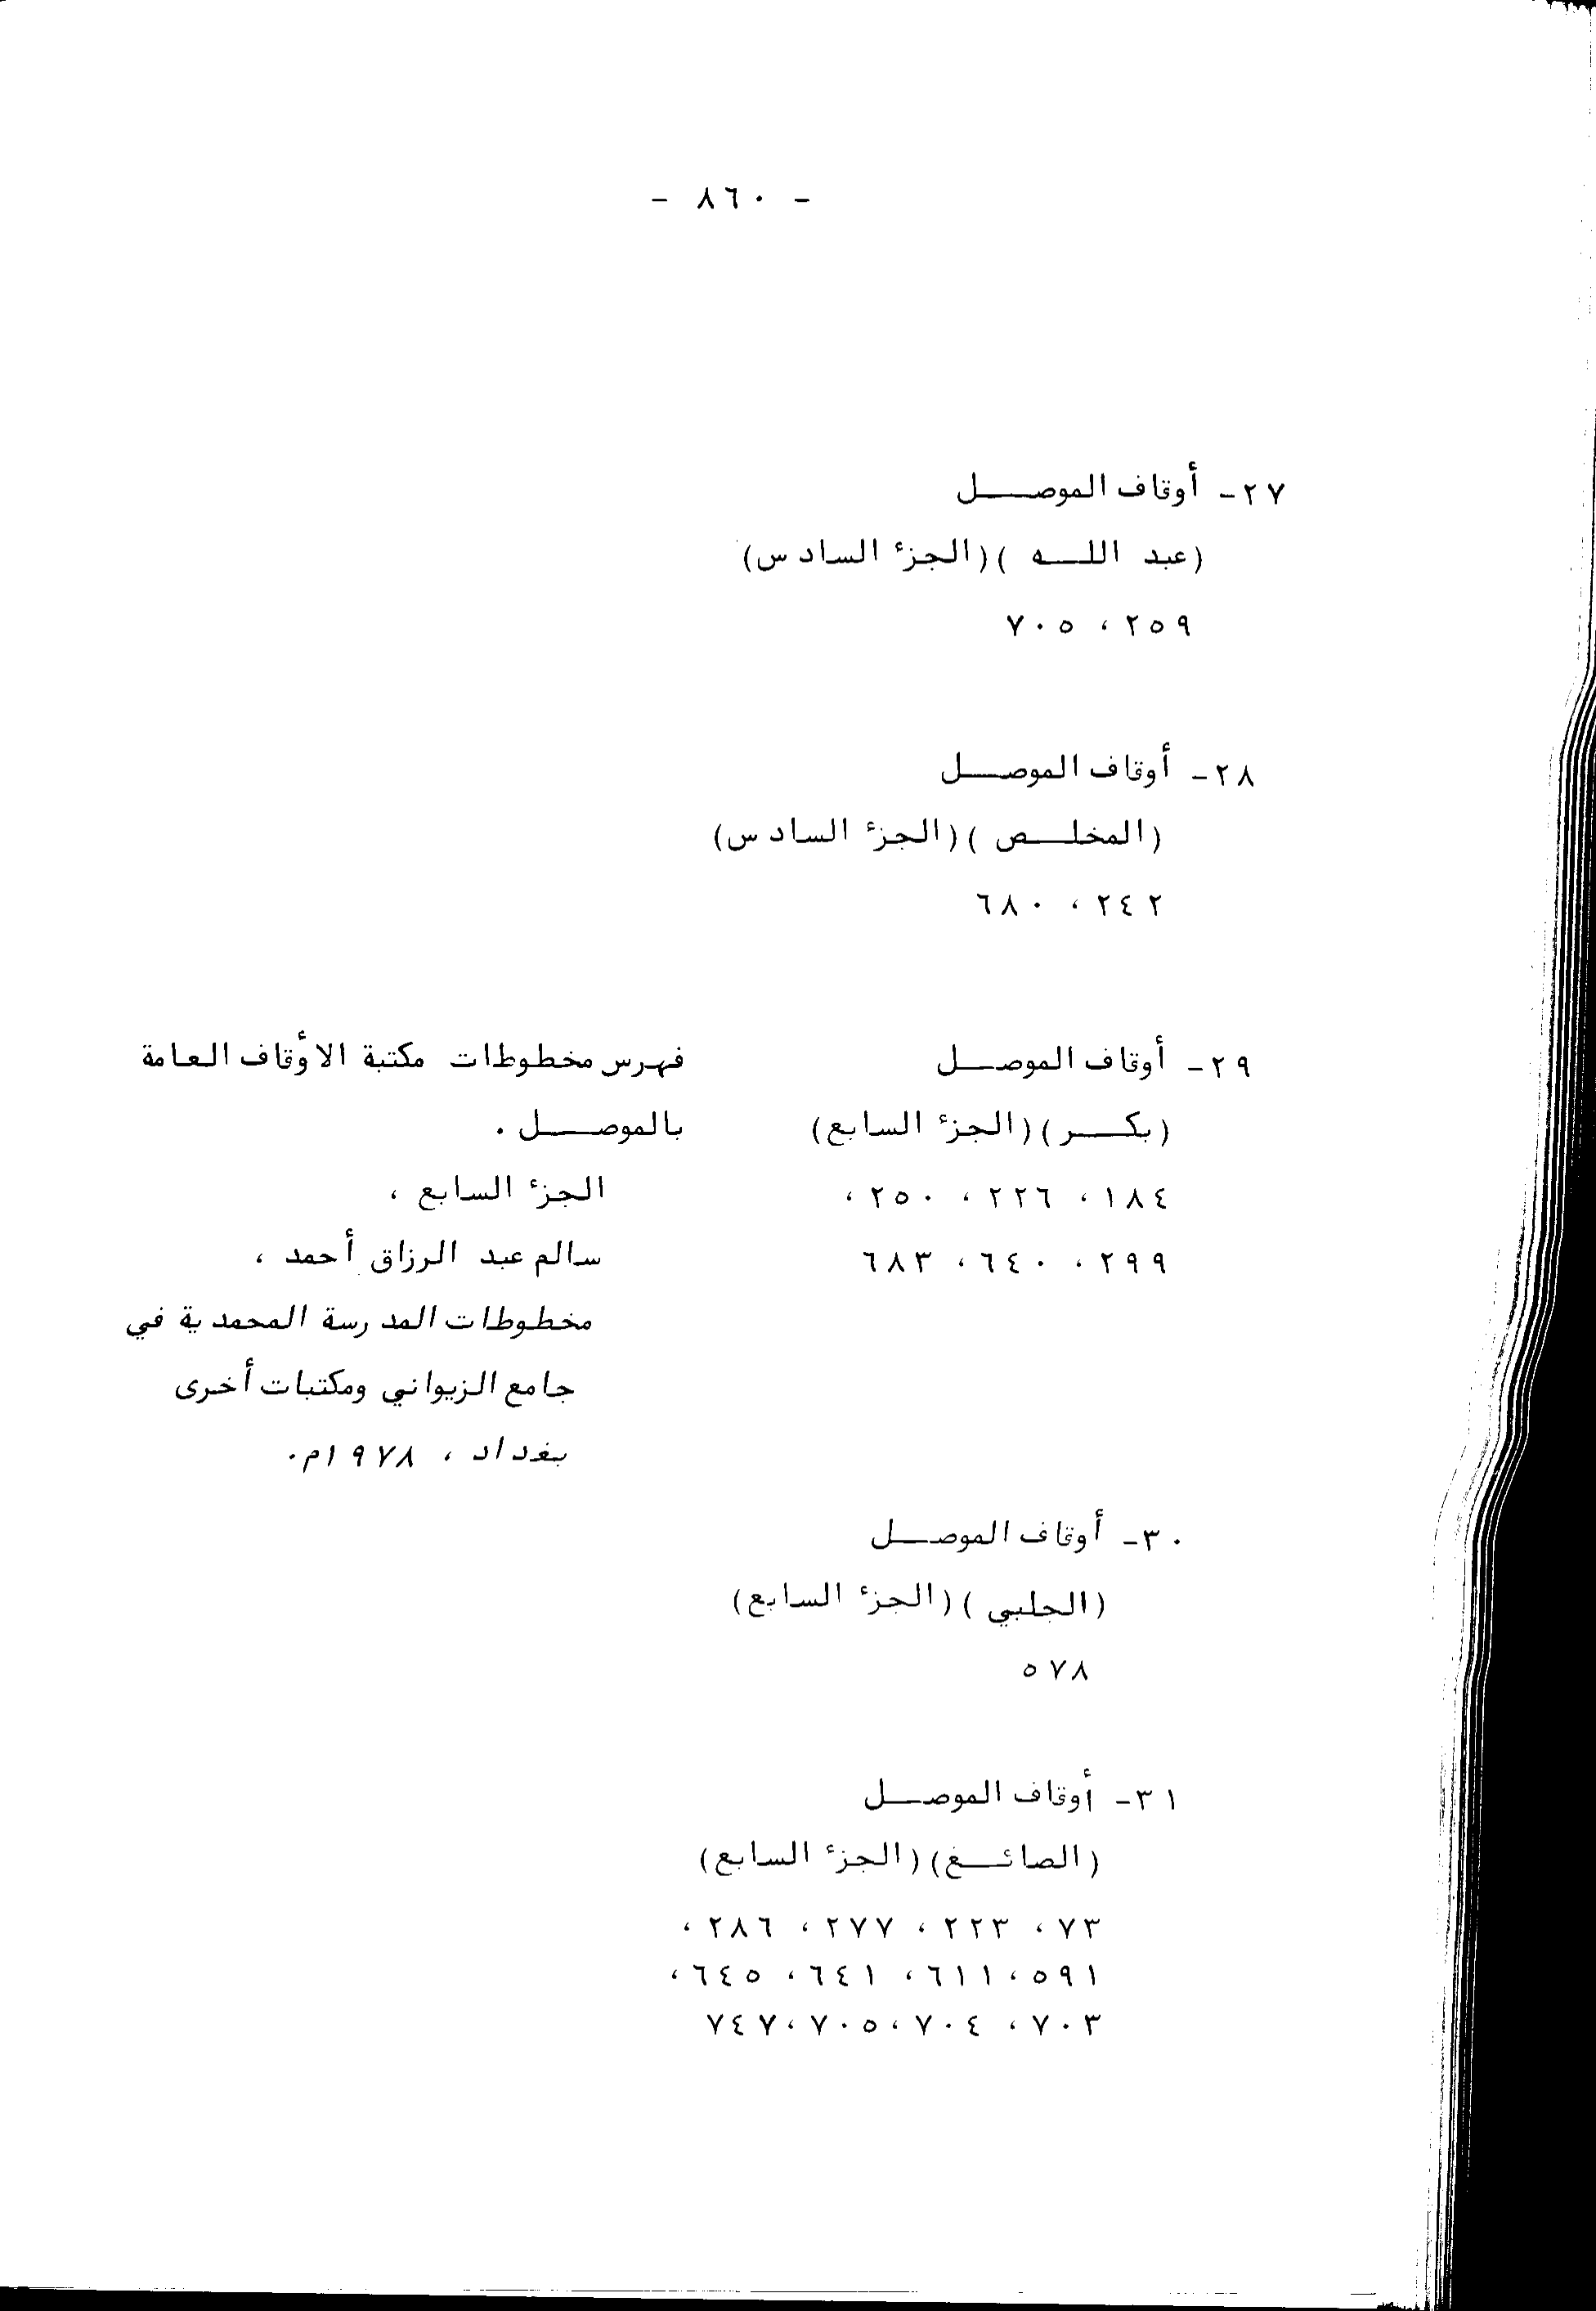 - ٨٦٠ -
٢٧- أوقاف الموصـــل
(عبد اللـــه )(الجزء السادس)
٢٥٩ ، ٧٠٥
٢٨- أوقاف الموصـــل
(المخلـــص )(الجزء السادس)
٢٤٢ ، ٦٨٠
٢٩- أوقاف الموصـــل
(بكـــر)(الجزء السابع)
١٨٤ ، ٢٢٦ ، ٢٥٠ ،
٢٩٩ ، ٦٤٠ ، ٦٨٣
فهرس مخطوطات مكتبة الأوقاف العامة
بالموصـــل .
الجزء السابع ،
سالم عبد الرزاق أحمد ،
مخطوطات المدرسة المحمدية في
جامع الزيواني ومكتبات أخرى
بغداد ، ١٩٧٨م.
٣٠- أوقاف الموصـــل
(الجلبي )(الجزء السابع)
٥٧٨
٣١- أوقاف الموصـــل
(الصائـــغ)(الجزء السابع)
٧٣ ، ٢٢٣ ، ٢٧٧ ، ٢٨٦ ،
٥٩١ ، ٦١١ ، ٦٤١ ، ٦٤٥ ،
٧٠٣ ، ٧٠٤ ، ٧٠٥ ، ٧٤٧